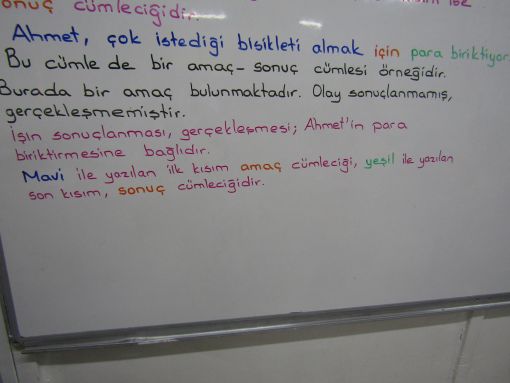 sonuç cümleciğidir. kısım ise
Ahmet, çok istediği bisikleti almak için para biriktiyor
Bu cümle de bir amaç-sonuç cümlesi örneğidir.
Burada bir amaç bulunmaktadır. Olay sonuçlanmamış,
gerçekleşmemiştir.
İşin sonuçlanması, gerçekleşmesi; Ahmet'in para
biriktirmesine bağlıdır.
Mavi ile yazılan ilk kısım amaç cümleciği, yeşil ile yazılan
son kısım, sonuç cümleciğidir.